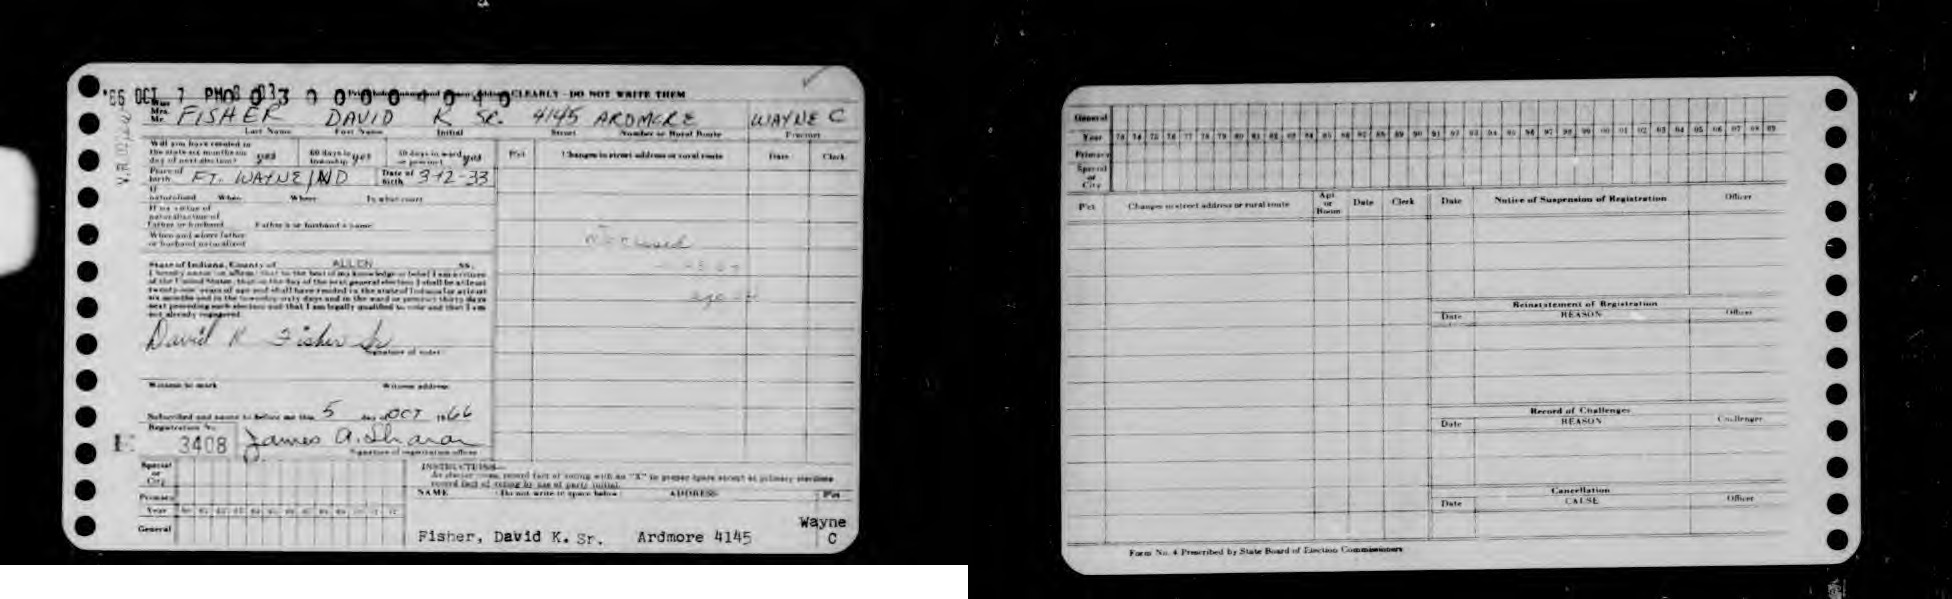 '66 OCT 7 PM
CLEARLY - DO NOT WRITE THEM
Mrs.
Mr. FISHER DAVID K SR. 4145 ARDMORE WAYNE C
Last Name First Name Initial Street Number or Rural Route Precinct
Will you have resided in
the state six months on
day of next election? yes 60 days in township yes 30 days in ward or precinct yes Pct Changes in street address or rural route Date Clerk
Place of birth FT. WAYNE, IND Date of birth 3-12-33
If
naturalized When Where In what court
If by virtue of
naturalization of
Father or husband Father's or husband's name
When and where father
or husband naturalized
Deceased
State of Indiana, County of ALLEN SS:
I hereby swear (or affirm) that to the best of my knowledge or belief I am a citizen
of the United States; that on the day of the next general election I shall be at least
twenty-one years of age and shall have resided in the state of Indiana for at least
six months and in the township sixty days and in the ward or precinct thirty days
next preceding such election and that I am legally qualified to vote and that I am
not already registered.
age
David K Fisher Sr
Signature of voter
Witness to mark Witness address
Subscribed and sworn to before me this 5 day of OCT 1966
Registration No.
3408 James A. Sharar
Signature of registration officer
Special
or
City
INSTRUCTIONS—
record fact of voting with an "X" in proper space except at primary elections
record fact of voting by use of party initial.
NAME (Do not write in space below) ADDRESS Pct
Primary
Year
General
Fisher, David K. Sr. Ardmore 4145 Wayne
C
General
Year 73 74 75 76 77 78 79 80 81 82 83 84 85 86 87 88 89 90 91 92 93 94 95 96 97 98 99 00 01 02 03 04 05 06 07 08 09
Primary
Special
or
City
Pct Changes in street address or rural route Apt. or Room Date Clerk Date Notice of Suspension of Registration Officer
Reinstatement of Registration
Date REASON Officer
Record of Challenges
Date REASON Challenger
Cancellation
Date CAUSE Officer
Form No. 4 Prescribed by State Board of Election Commissioners